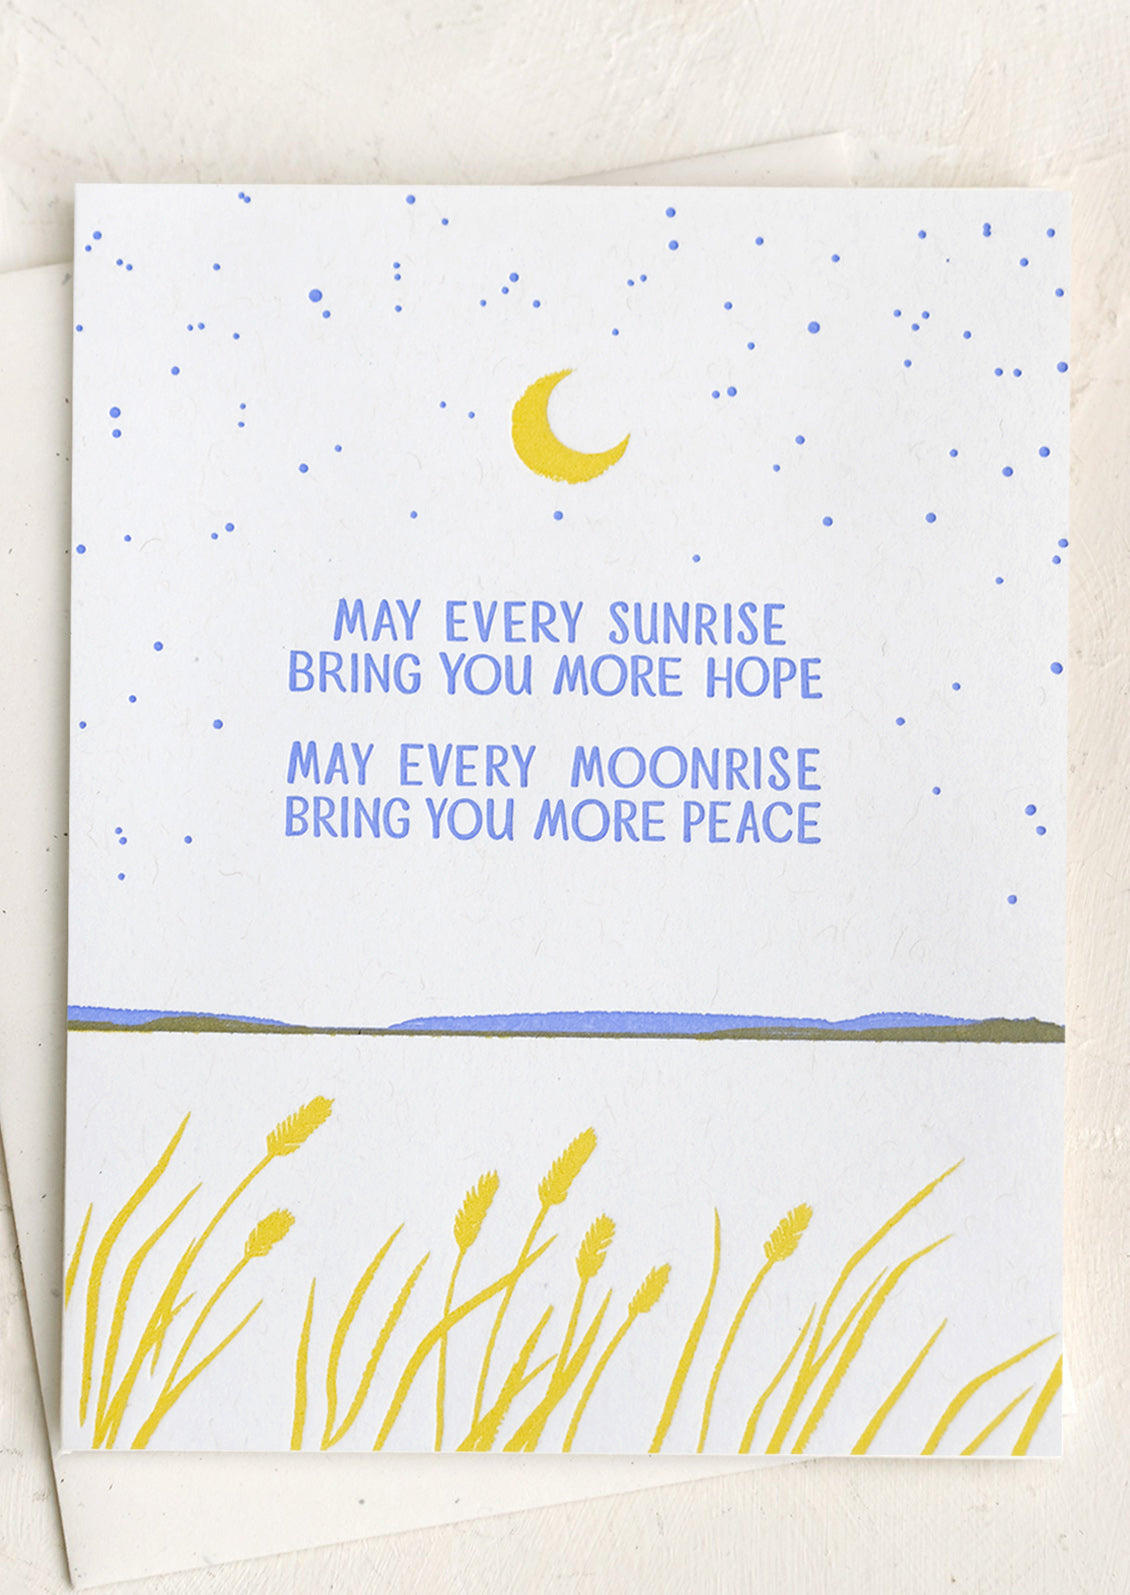 MAY EVERY SUNRISE
BRING YOU MORE HOPE
MAY EVERY MOONRISE
BRING YOU MORE PEACE